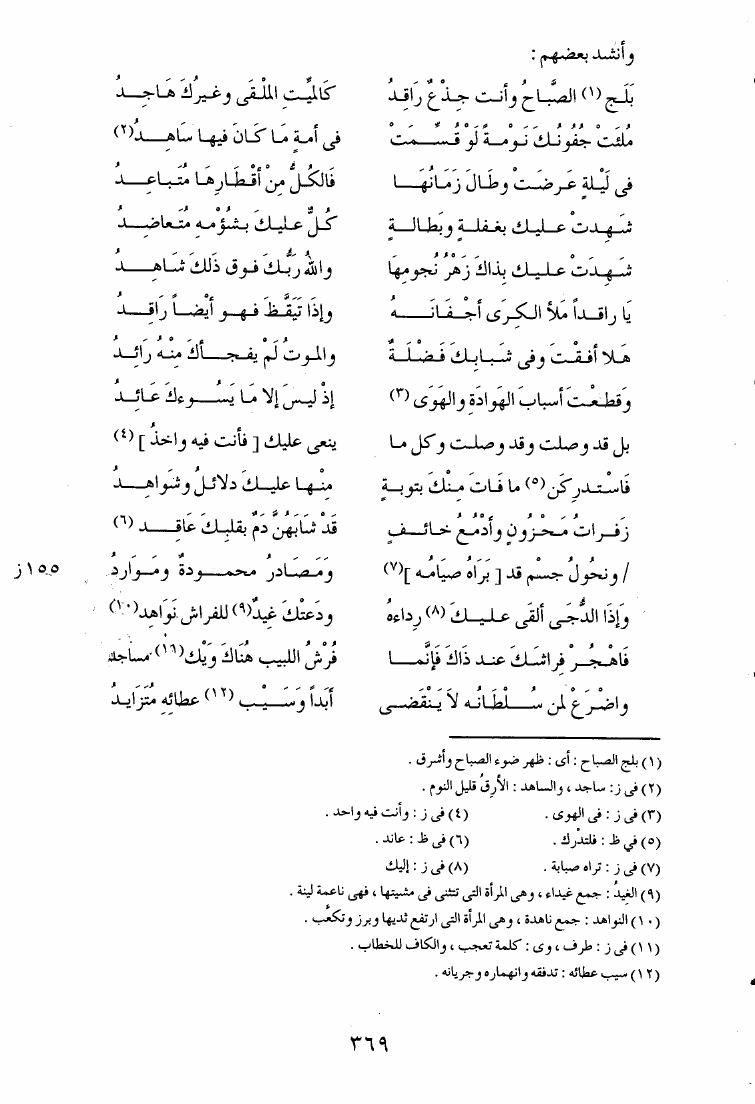 وأنشد بعضهم :
بَلَج (١) الصَّبَاحُ وأنت جِذعٌ رَاقِدُ كَالميِّتِ الملْقَى وغيرُكَ هَاجِدُ
مُلئَتْ جفُونُكَ نَومَةً لَو قُسِّمَتْ فى أمةٍ مَا كَانَ فيها سَاهِدُ (٢)
فى لَيْلَةٍ عَرضَتْ وطَالَ زَمَانُهَا فَالكُلُّ مِنْ أقْطَارِهَا مُتَباعِدُ
شَهِدتْ عليكَ بغفلةٍ وبَطالةٍ كلٌّ عليكَ بشُؤْمِه مُتَعاضِدُ
شَهِدَتْ عليكَ بذَاكَ زُهْرُ نُجومِهَا واللهُ رَبُّكَ فوق ذَلكَ شَاهِدُ
يَا راقداً مَلأ الكرَى أجْفَانَهُ وإذَا تيَقَّظَ فهو أيْضاً رَاقِدُ
هَلا أفقْتَ وفى شَبَابِكَ فَضْلَةٌ والموتُ لَمْ يفجأكَ مِنْه رَائِدُ
وقطعْتَ أسبابَ الهَوادَةِ والهَوَى (٣) إذْ ليسَ إلا مَا يَسُوءكَ عَائِدُ
بل قد وصلت وقد وصلت وكل ما ينعى عليك [ فأنت فيه واخذُ ] (٤)
فَاسْتدرِكَن (٥) ما فَاتَ مِنْكَ بتوبةٍ مِنْها عليكَ دلائلُ وشَواهِدُ
زَفراتُ مَحْزُونٍ وأدْمُعُ خائفٍ قَدْ شَابَهُنَّ دَمٌ بقلبِكَ عَاقِدُ (٦)
/ ونحُولُ جسْمٍ قد [ بَرَاه صيَامُه ] (٧) وَمَصَادرُ محمودةٌ ومَوارِدُ
١٥٥ز
وَإذَا الدُّجَى ألقَى عليكَ (٨) رِداءهُ ودَعتْكَ غيدٌ (٩) للفراشِ نَواهِد (١٠)
فَاهْجُرْ فِراشَكَ عند ذَاكَ فَإنَّمَا فُرْشُ اللبيبِ هُنَاكَ وَيْكَ (١١) مساجدُ
واضْرَعْ لمن سُلْطَانُه لاَ يَنْقَضِى أبَداً وَسَيْبُ (١٢) عطائِه مُتَزايدُ
(١) بلج الصباح : أى : ظهر ضوء الصباح وأشرق .
(٢) فى ز : ساجد ، والساهد : الأرِقُ قليل النوم .
(٣) فى ز : فى الهوى . (٤) فى ز : وأنت فيه واحد .
(٥) في ظ : فلتدْرك . (٦) فى ظ : عاند .
(٧) فى ز : تراه صبابة . (٨) فى ز : إليك
(٩) الغيدُ : جمع غيداء ، وهى المرأة التى تتثنى فى مشيتها ، فهى ناعمة لينة .
(١٠) النواهد : جمع ناهدة ، وهى المرأة التى ارتفع ثديها وبرز وتكعَّب .
(١١) فى ز : طرف ، وى : كلمة تعجب ، والكاف للخطاب .
(١٢) سيب عطائه : تدفقه وانهماره وجريانه .
٣٦٩